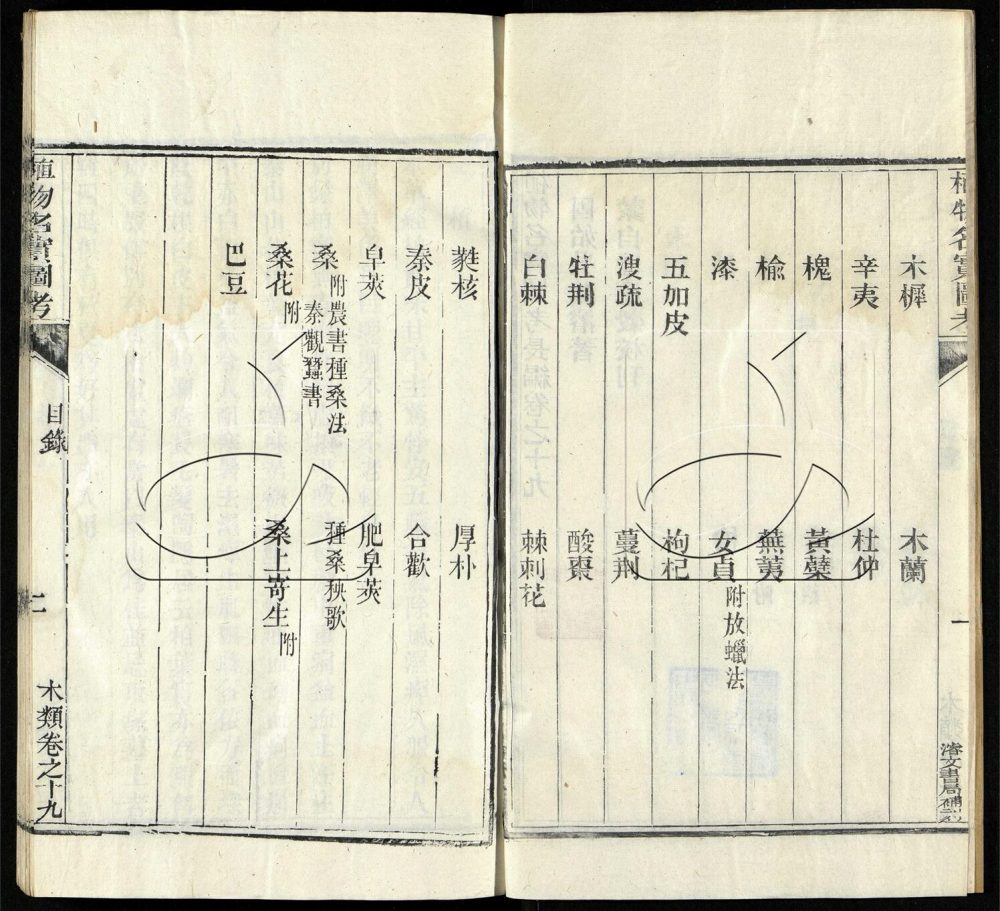 植物名實圖考
木類
一
濬文書局補刻
木樨
木蘭
辛夷
杜仲
槐
黃蘗
榆
蕪荑
漆
女貞附放蠟法
五加皮
枸杞
溲疏
蔓荆
牡荆
酸棗
白棘
棘刺花
蕤核
厚朴
秦皮
合歡
皁莢
肥皁莢
桑附農書種桑法
秦觀蠶書
種桑秧歌
桑花附
桑上寄生附
巴豆
植物名實圖考
目錄
二
木類卷之十九